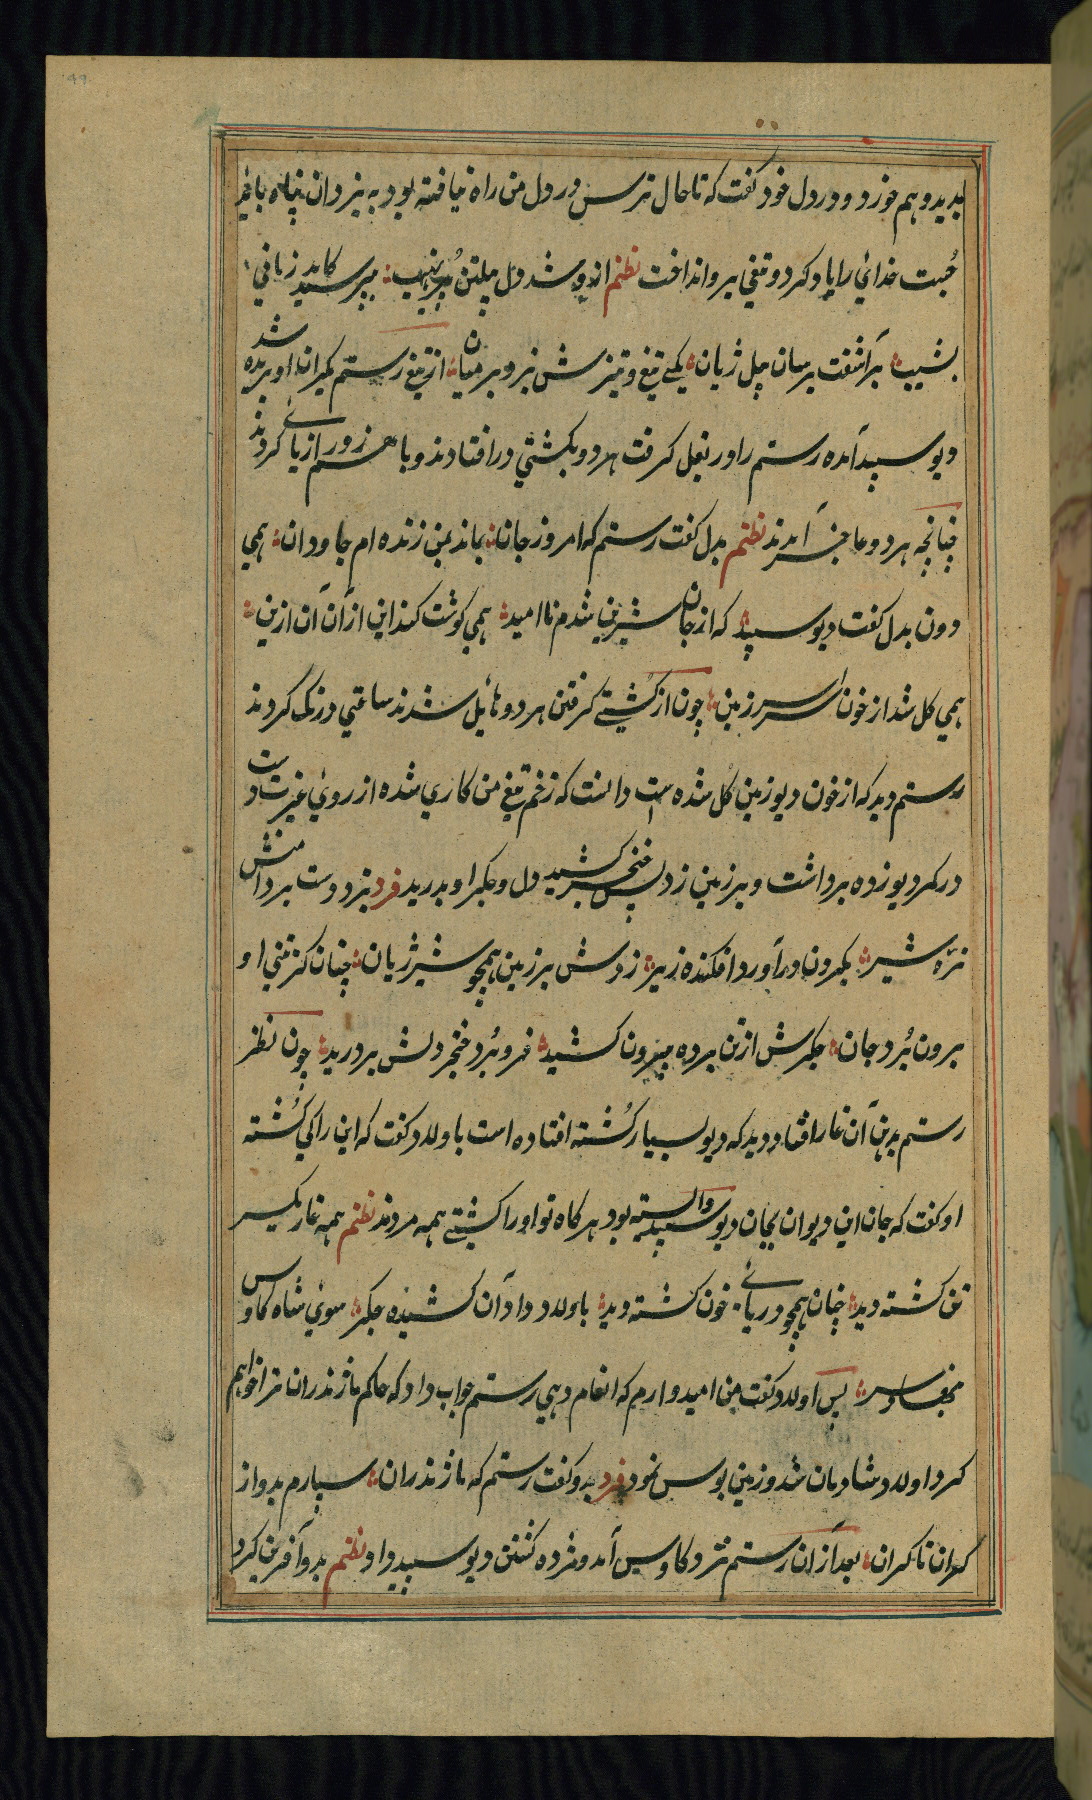 بدید و هم خورد و در دل خود گفت که تا حال ترس در دل من راه نیافته بود به یزدان پناه باید
جست خدائ را یاد کرد و تیغی برو انداخت نظم ازو شد دل پیلتن پر نهیب بترسید کاید زمانی
بشیب برآشفت برسان پیل ژیان یکی تیغ و تیزش بزد بر میان از تیغ رستم یکران او بریده شد
دیو سپید آمده رستم را در بغل گرفت هر دو بکشتی در افتادند و با هم زور ازمائی کردند
چنانچه هر دو عاجز آمدند نظم بدل گفت رستم که امروز جان بماند بمن زنده ام جاودان همی
دون بدل گفت دیو سپید که از جان شیرین شدم ناامید همی گوشت کند این از آن آن ازین
همی گل شد از خون سراسر زمین چون از کشتی گرفتن هر دو هایل شدند ساعتی درنگ کردند
رستم دید که از خون دیو زمین گل شده است دانست که زخم تیغ من کاری شده از روی غیرت دست
در کمر دیو زده برداشت و بر زمین زد پس خنجر کشید دل و جگر او بدرید فرد بزد دست برداشتش
نره شیر بگردن برآورد افکنده زیر زدش بر زمین همچو شیر ژیان چنان کز تنی او
برون برد جان جگرش از تن برده بیرون کشید فرو برد خنجر دلش بردرید چون نظر
رستم بدین آن غار افتاد دید که دیو بسیار کشته افتاده است با ولاد گفت که این را کی کشته
او گفت که جان این دیوان بجان دیو سپید وابسته بود هر کاه تو او را کشتی همه مردند نظم همه غار یکسر
تن کشته دید چنان همچو دریائی خون کشته دید باولاد داد آن کشیده جگر سوی شاه کاوس
بنهاد سر پس اولاد گفت من امیدوارم که انعام دهی رستم جواب داد که حاکم ماژندران ترا خواهم
کرد اولاد شادمان شد و زمین بوس نمود فرد بدو گفت رستم که ماژندران سپارم بدو از
کران تا کران بعد از آن رستم نزد کاوس آمد و مژده کشتن دیو سپید داد نظم بدو آفرین کرد